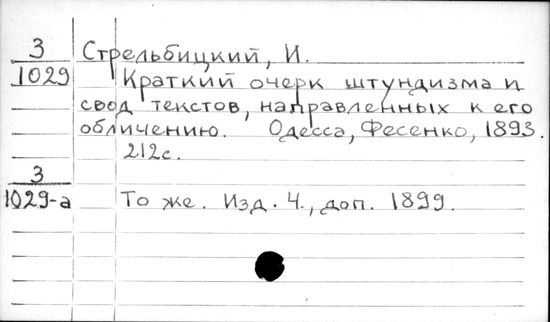 З Стрельбицкий, И.
1029 Краткий очерк штундизма и
свод текстов, направленных к его
обличению. Одесса, Фесенко, 1893.
212с.
З
1029-а То же. Изд. 4., доп. 1899.